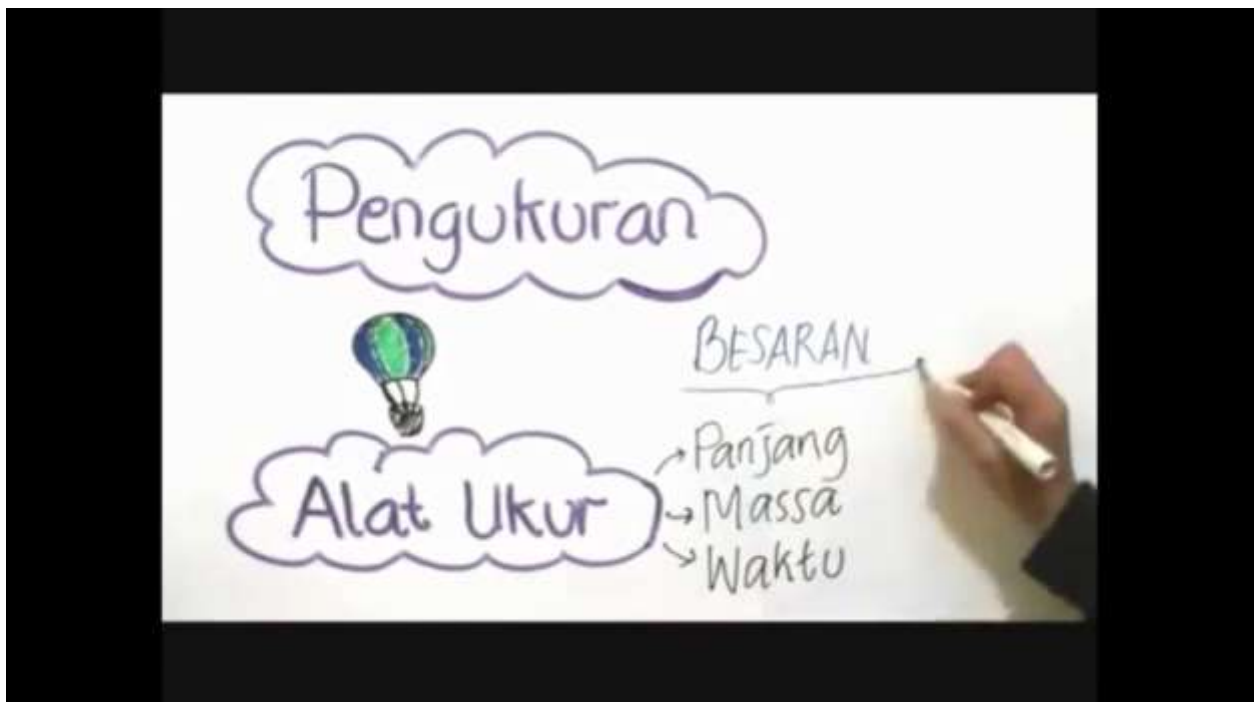 Pengukuran
BESARAN
Alat Ukur
Panjang
Massa
Waktu